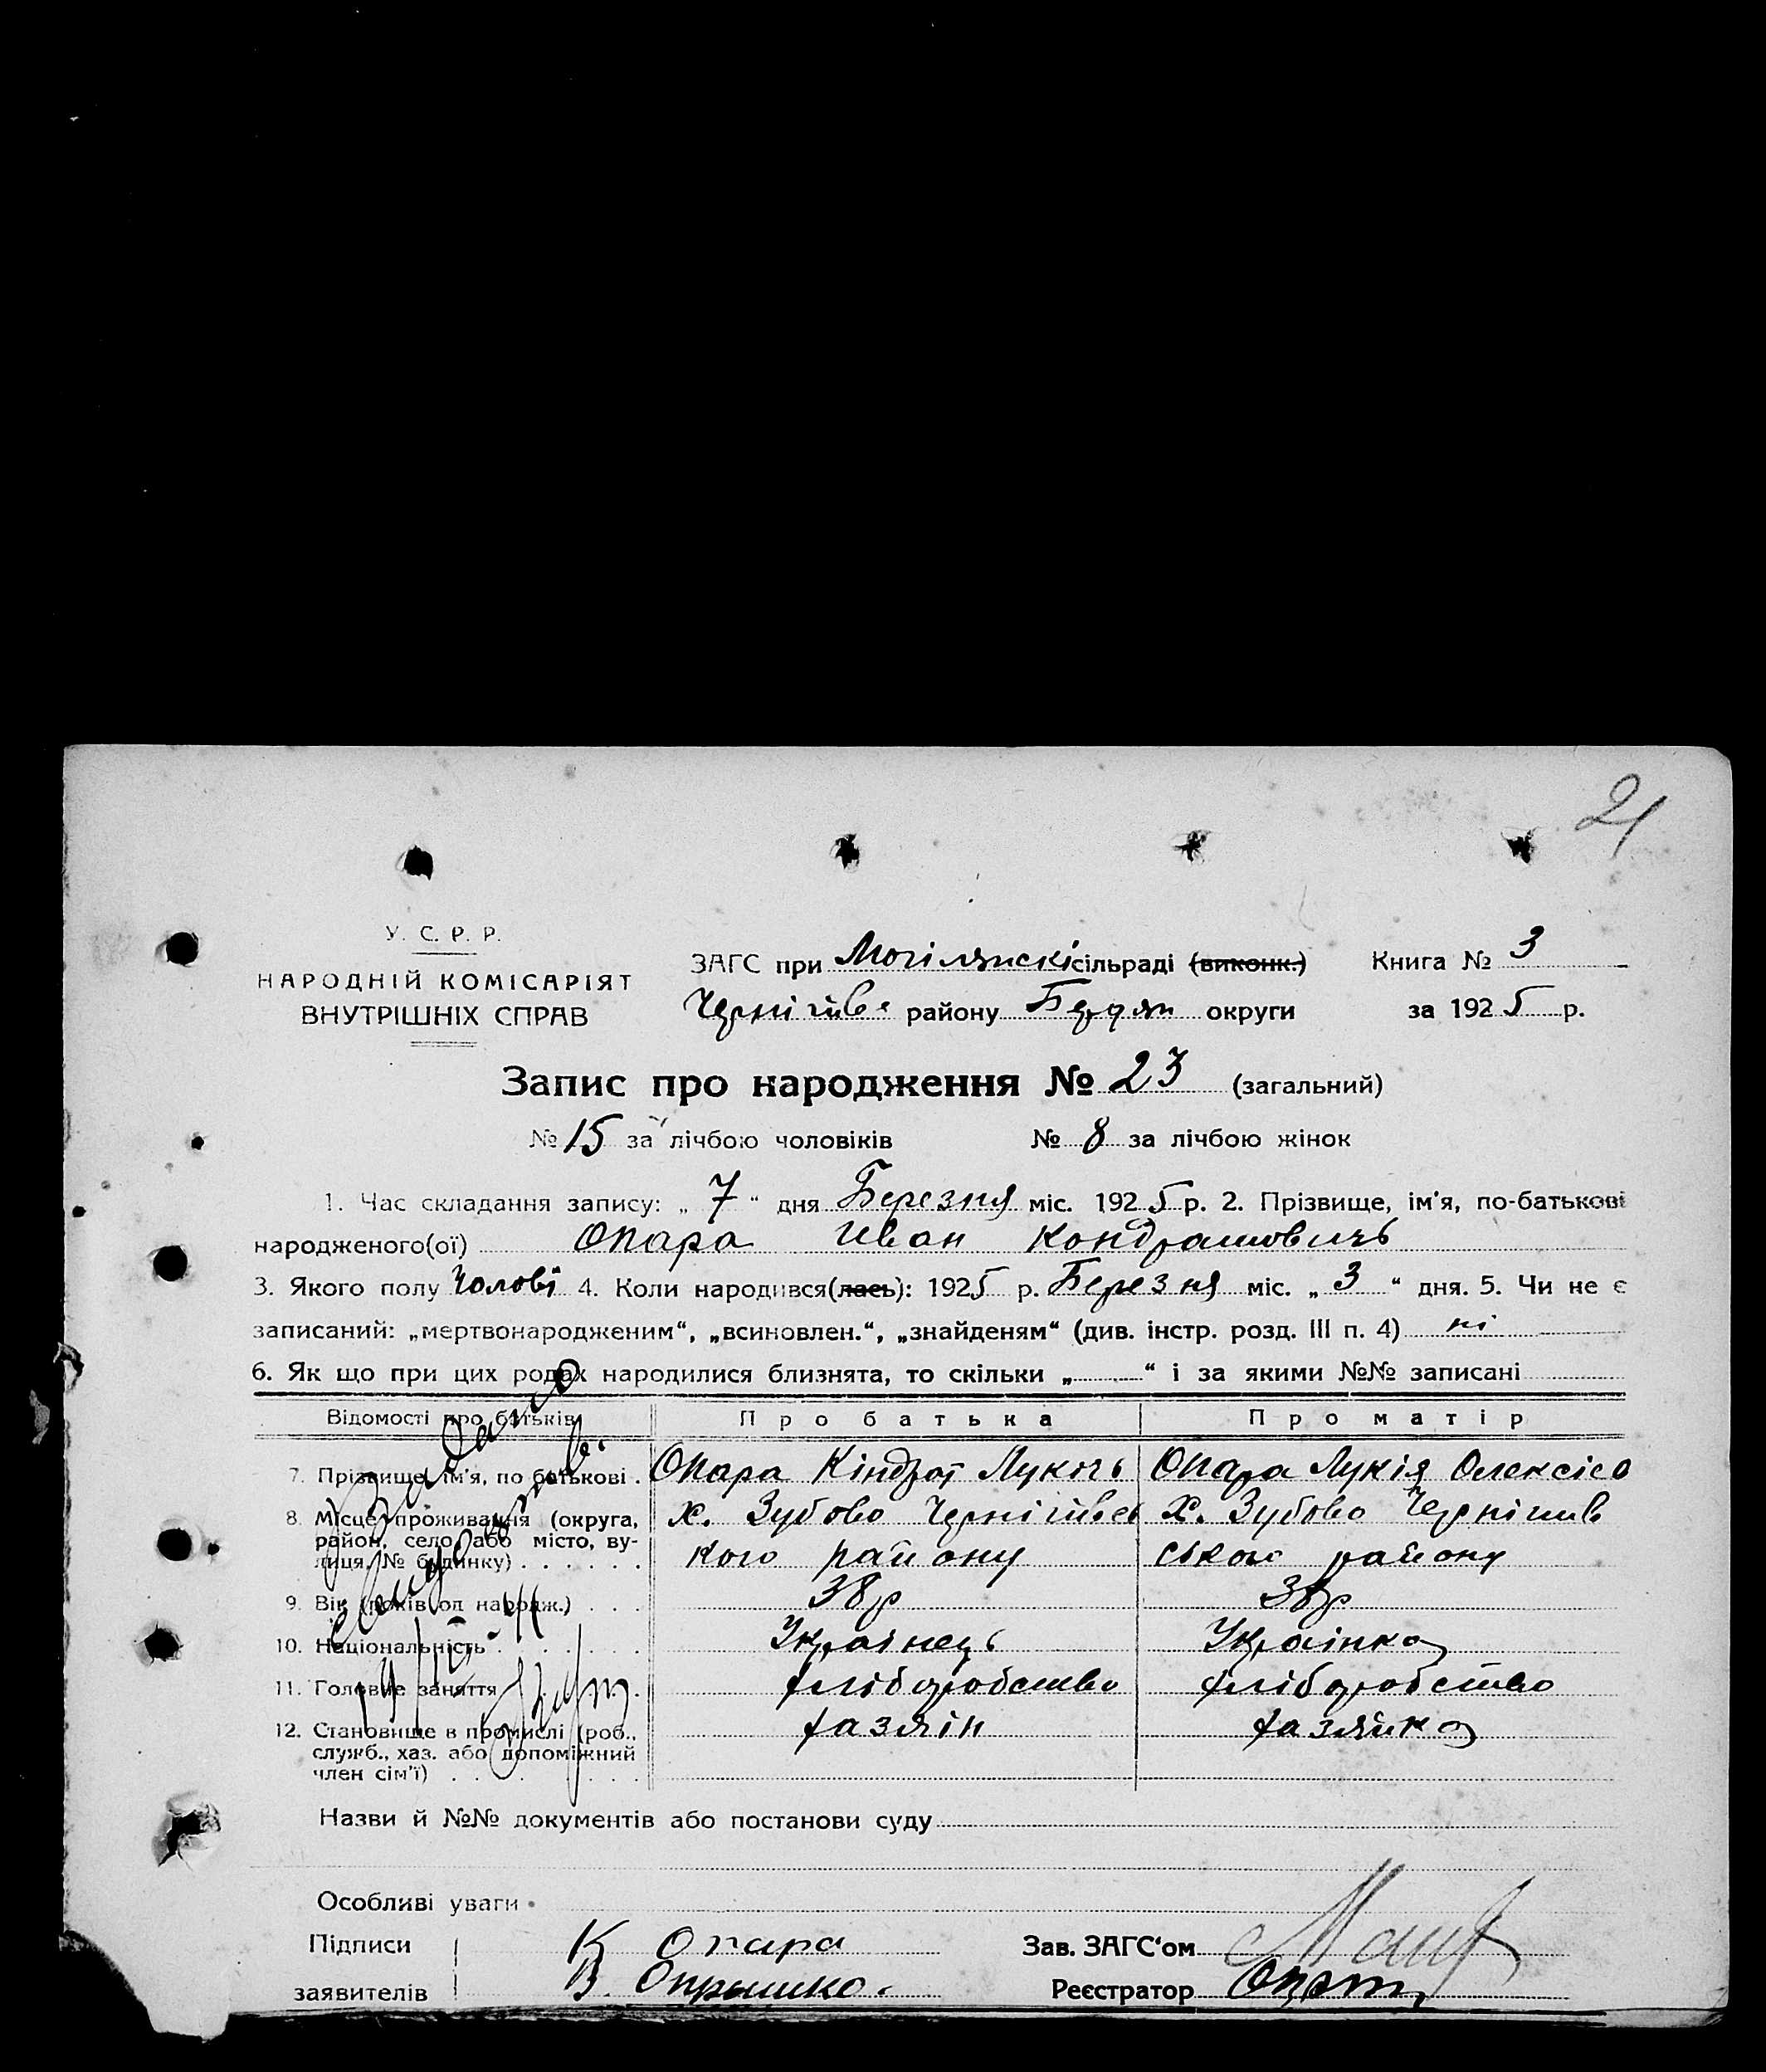 21
У. С. Р. Р.
НАРОДНІЙ КОМІСАРІЯТ
ВНУТРІШНІХ СПРАВ
ЗАГС при Могілянскі сільраді (виконк.) Книга № 3
Чернігів. району Бердян округи за 1925 р.
Запис про народження № 23 (загальний)
№ 15 за лічбою чоловіків № 8 за лічбою жінок
1. Час складання запису: „ 7 “ дня Березня міс. 1925 р. 2. Прізвище, ім'я, по-батькові
народженого(ої) Опара Иван Кондратовичь
3. Якого полу Чолові 4. Коли народився(лась): 1925 р. Березня міс. „ 3 “ дня. 5. Чи не є
записаний: „мертвонародженим“, „всиновлен.“, „знайденям“ (див. інстр. розд. III п. 4) ні
6. Як що при цих родах народилися близнята, то скільки „ “ і за якими №№ записані
Відомості про батьків Про батька Про матір
7. Прізвище, ім'я, по батькові . Опара Кіндрат Лукичь Опара Лукія Олексієо
8. Місце проживання (округа, х. Зубово Чернігівсь х. Зубово Чернігів
район, село, або місто, ву-
лиця, № будинку) . . . . . . кого району ського району
9. Вік (років од народж.) . . . 38р 38р
10. Національність . . . . . . Українець Українка
11. Головне заняття . . . . хліборобство хліборобство
12. Становище в промислі (роб., хазяін хазяйка
служб., хаз. або допоміжний
член сім'ї) . . . . . .
Назви й №№ документів або постанови суду
Особливі уваги
Підписи К Опара Зав. ЗАГС‘ом
заявителів В. Опрышко. Реєстратор